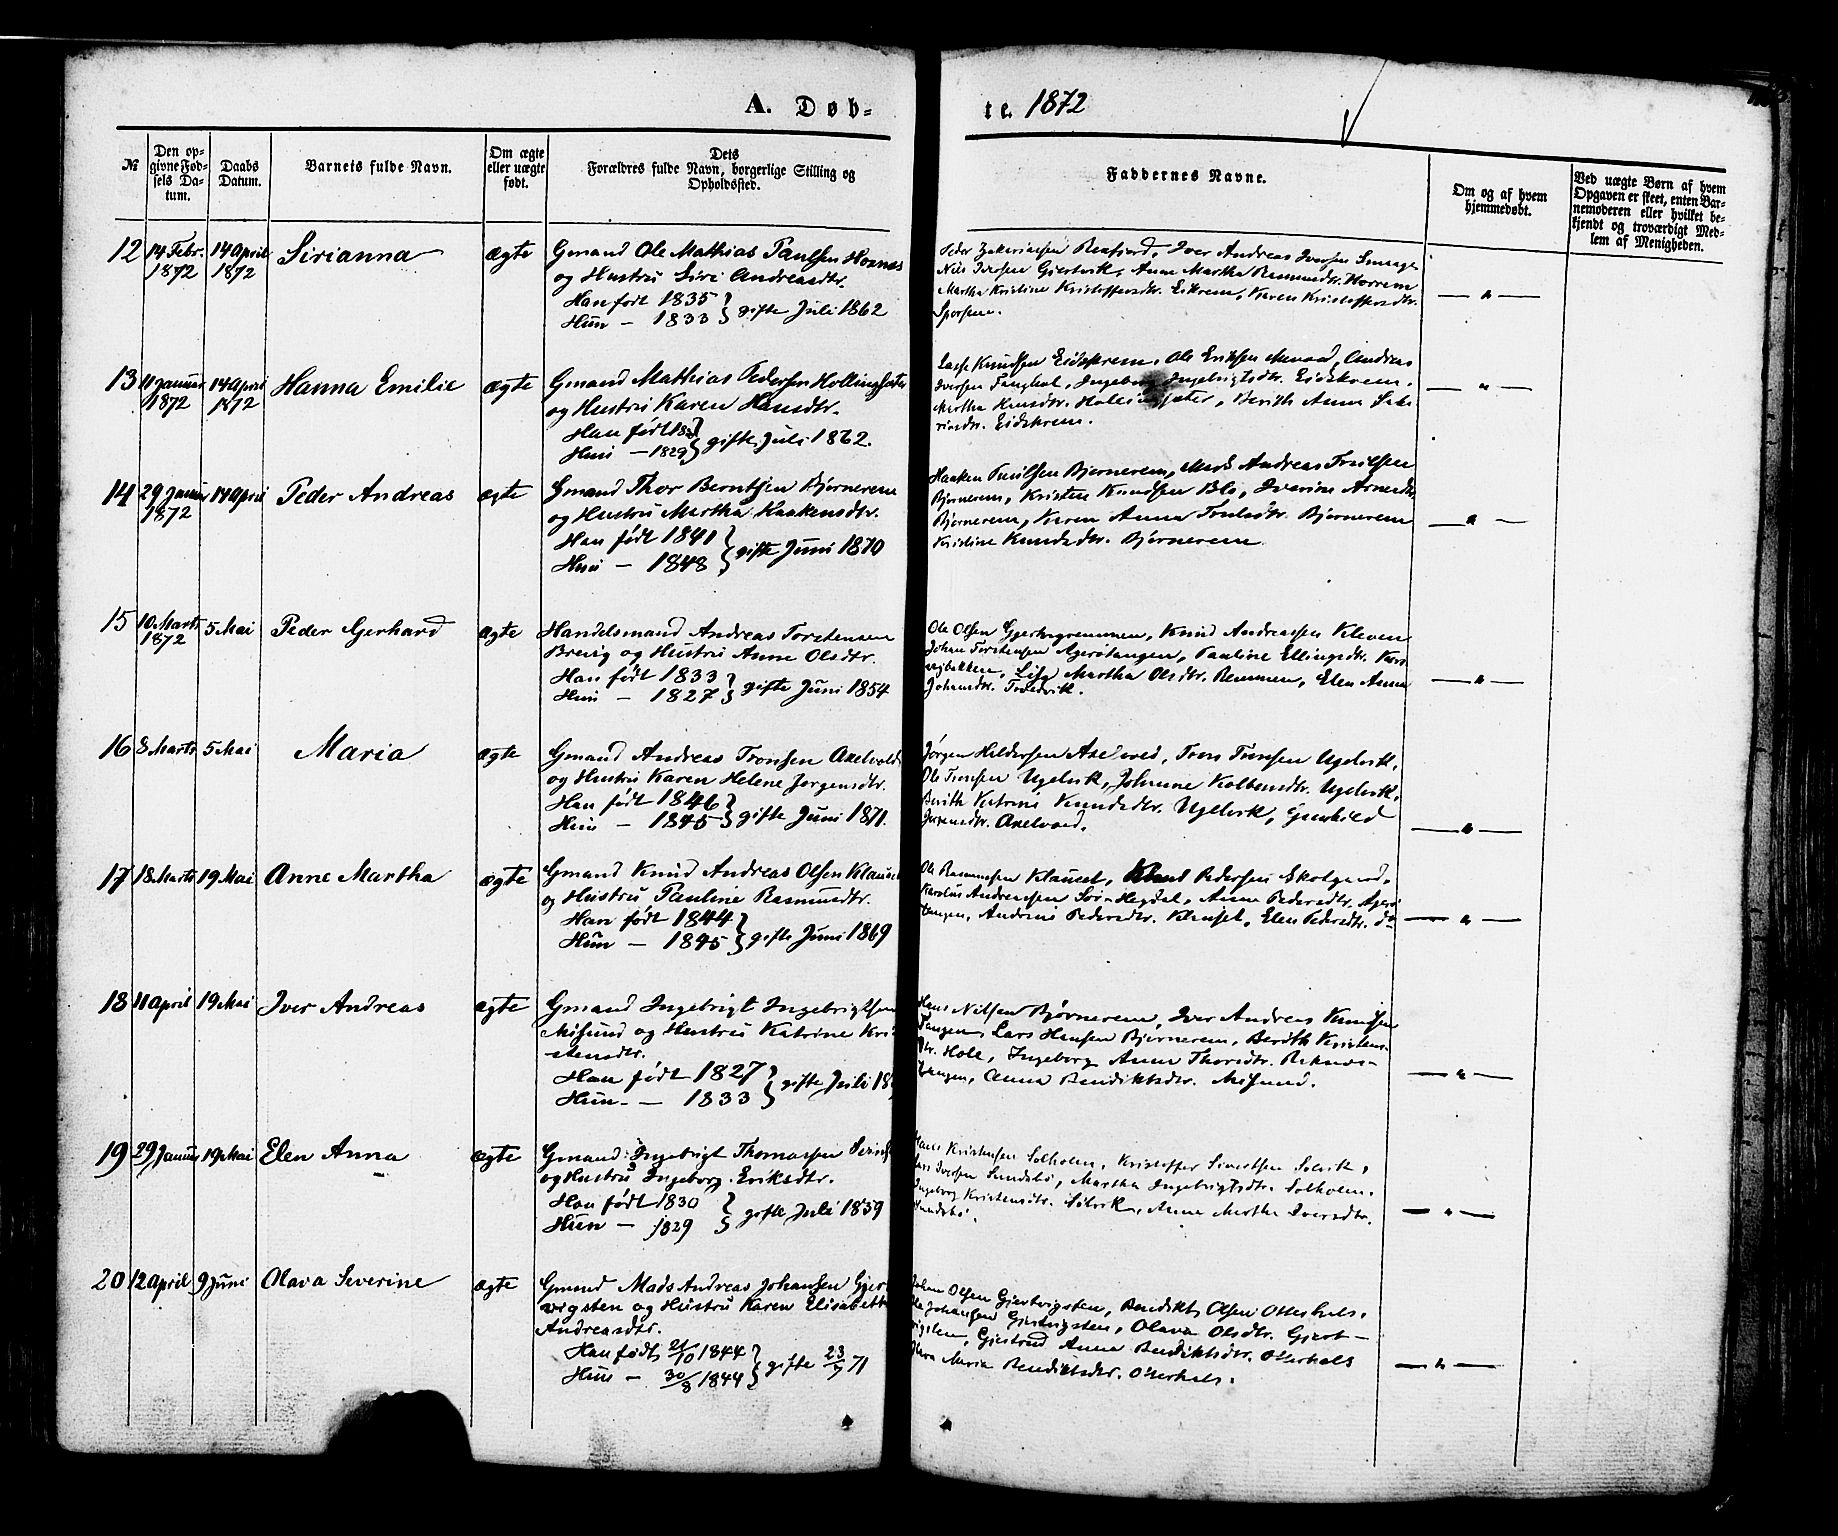 A. Døb-
te. 1872
№
Den op-
givne Fød-
sels Da-
tum.
Daabs
Datum.
Barnets fulde Navn.
Om ægte
eller uægte
født.
Dets
Forældres fulde Navn, borgerlige Stilling og
Opholdssted.
Faddernes Navne.
Om og af hvem
hjemmedøbt.
Ved uægte Børn af hvem
Opgaven er skeet, enten Bar-
nemoderen eller hvilket be-
kjendt og troværdigt Med-
lem af Menigheden.
12 14 Febr. 1872 14 April 1872 Sirianna ægte
Gmand Ole Mathias Paulsen Hornes
og Hustru Siri Andreasdtr.
Han født 1835
Hun — 1833 } gifte Juli 1862
Iver Andreas Iversen
Nils Iversen Gjertvik, Anne Martha Rasmusdtr. Horrem
Martha Kristine Kristoffersdtr. Eikrem, Karen Kristoffersdtr.
— " —
13 11 Januar 1872 14 April 1872 Hanna Emilie ægte
Gmand Mathias Pedersen Hollingsæter
og Hustru Karen Hansdtr.
Han født
Hun — 1829 } gifte Juli 1862.
Lasse Knudsen Eidskrem, Ole Eriksen, Andreas
Iversen Tanghol, Ingeborg Ingebrigtsdtr. Eidskrem.
Martha Hansdtr. Hollingsæter, Berith Anna
Eidskrem.
— " —
14 29 Januar 1872 14 April Peder Andreas ægte
Gmand Thor Berntsen Bjørnerem
og Hustru Martha Haakensdtr.
Han født 1841
Hun — 1848 } gifte Juni 1870
Haaken Truilsen Bjørnerem, Mads Andreas Truilsen
Bjørnerem, Kristen Knudsen Blø, Iverine Arnesdtr.
Bjørnerem, Karen Anna Truilsdtr. Bjørnerem
Kristine Knudsdtr. Bjørnerem
— " —
15 10 Marts 1872 5 Mai Peder Gerhard ægte
Handelsmand Andreas Torstensen
Brevig og Hustru Anne Olsdtr.
Han født 1833
Hun — 1827 } gifte Juni 1854
Ole Olsen, Knud Andreassen Kleven
Johan Torstensen Agerøtangen, Pauline Ellingsdtr.
Martha Olsdtr. Remmen, Elen Anna
Johansdtr.
— " —
16 8 Marts 5 Mai Maria ægte
Gmand Andreas Tronsen Axelvold
og Hustru Karen Helene Jørgensdtr.
Han født 1846
Hun — 1845 } gifte Juni 1871.
Jørgen Axelvold, Tron Tronsen Ugelvik,
Ole Tronsen Ugelvik, Johanne Kolbensdtr. Ugelvik,
Berith Katrine Knudsdtr. Ugelvik, Gunhild
Axelvold.
— " —
17 18 Marts 19 Mai Anne Martha ægte
Gmand Knud Andreas Olsen Klauset
og Hustru Pauline Rasmusdtr.
Han født 1844
Hun — 1845 } gifte Juni 1869
Ole Rasmussen Klauset, Knud Pedersen Skotgaard,
Karolus Andreassen Sør-Hegdal, Anne Pedersdtr. Agerø-
tangen, Andrine Pedersdtr. Klauset, Elen Pedersdtr. do
— " —
18 11 April 19 Mai Iver Andreas ægte
Gmand Ingebrigt Ingebrigtsen
Misund og Hustru Katrine Kri-
stensdtr.
Han født 1827
Hun — 1833 } gifte Juli
Hans Nilsen Bjørnerem, Iver Andreas Knudsen
Tangen, Lars Hansen Bjørnerem, Berith Kristens-
dtr. Hole, Ingeborg Anna Thorsdtr. Raknes-
tangen, Anna Bendiktsdtr. Misund.
— " —
19 29 Januar 19 Mai Elen Anna ægte
Gmand Ingebrigt Thomassen
og Hustru Ingeborg Eriksdtr.
Han født 1830
Hun — 1829 } gifte Juli 1859
Kristensen Solholm, Kristoffer Sivertsen Solvik,
Iversen Sundsbø, Martha Ingebrigtsdtr. Solholm.
Ingeborg Kristensdtr. Solvik, Anne Martha Iversdtr.
Sundsbø.
— " —
20 12 April 9 Juni Olava Severine ægte
Gmand Mads Andreas Johansen Gjert-
vigsten og Hustru Karen Elisabeth
Andreasdtr.
Han født 21/10 1844
Hun — 30/8 1844 } gifte 23/7 71
Johan Olsen Gjertvigsten, Bendikt Olsen Otterhals.
Ole Johansen Gjertvigsten, Olava Olsdtr. Gjert-
vigsten, Gjertrud Anna Bendiktsdtr. Otterhals
Maria Bendiktsdtr. Otterhals.
— " —